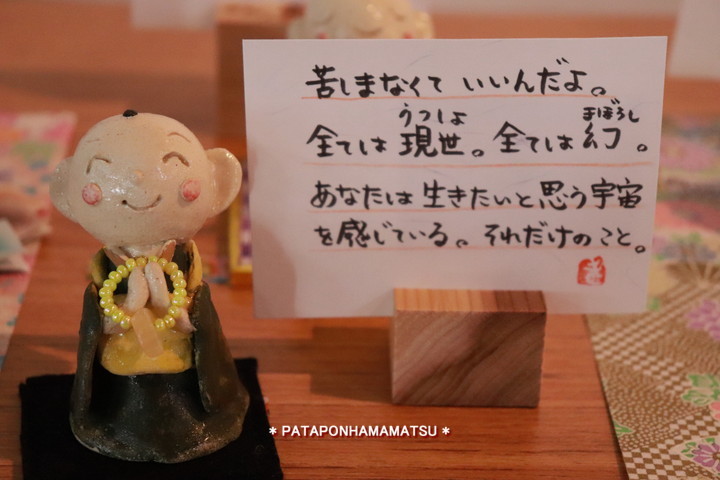 苦しまなくて いいんだよ。
うつしよ まぼろし
全ては 現世。全ては 幻。
あなたは 生きたいと思う宇宙
を感じている。それだけのこと。
* PATAPONHAMAMATSU *